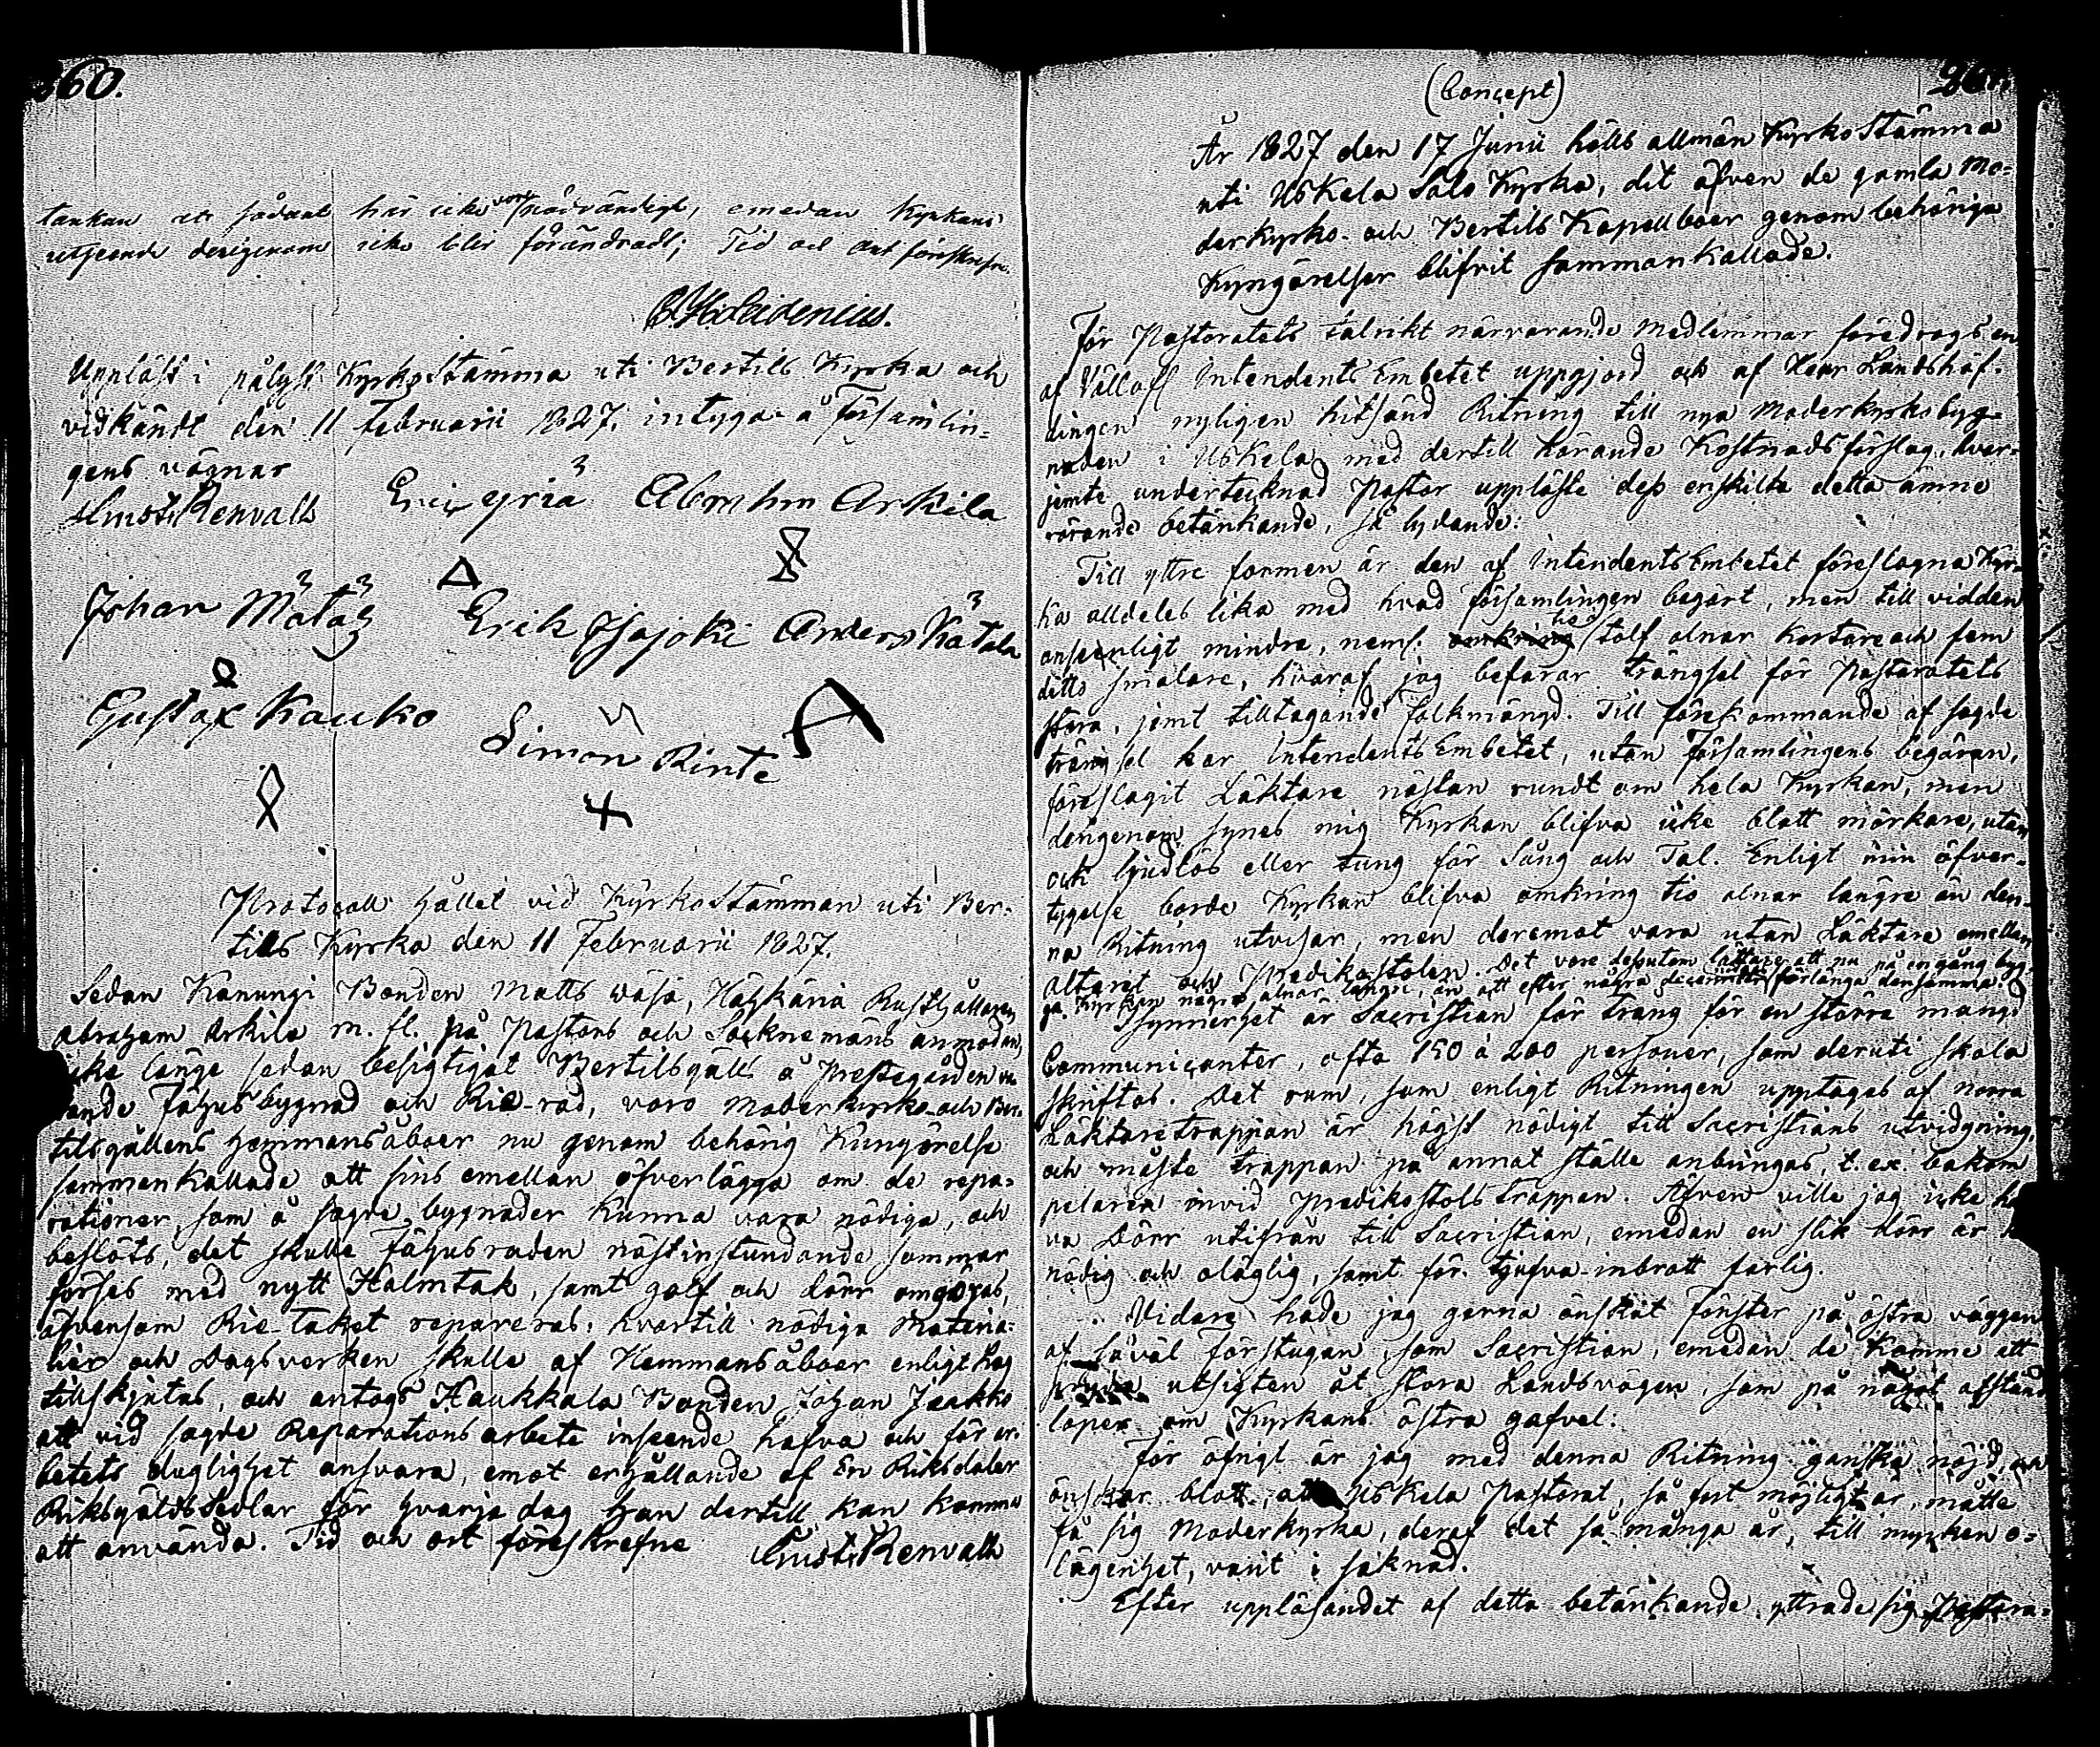 360.
tankan att sådant här icke vore nödvändigt, emedan Kyrkans
utseende derigenom icke blir förändradt; Tid och ort förskrefne.
Upläst i pålyst KyrkoStämma uti Bertils Kyrka och
vidkändt den 11 Februarii 1827, intyga å Församlin-
gens vägnar
Gust. Renvall Eric Yriä Abraham Arkila
Johan Mätas Erik Isajoki Anders Katala
Gustaf Kauko Simon Rinte
Protocoll hållet vid KyrkoStämman uti Ber-
tils Kyrka den 11 Februarii 1827.
Sedan Kanungi Bonden Matts Wäsä, Rusthållaren
Abraham Arkila m. fl. på Pastors och Sockenemäns anmodan,
icke länge sedan besigtigat Bertilsgälls å Prestegården va-
rande Fähusbygnad och Rie-rad, voro Moderkyrko- och Ber-
tilsgällens Hemmansåboer nu genom behörig Kungörelse
sammankallade att sins emellan öfverlägga om de repa-
rationer, som å sagde bygnader kunna vara nödiga, och
beslöts, det skulle Fähusraden nästinstundande sommar
förses med nytt Halmtak, samt golf och dörr omgöras,
äfvensom Rie-taket repareras, hvartill nödiga Materia-
lier och Dagsverken skulle af Hemmansåboer enligt Lag
tillskjutas, och antogs Haukkala Bonden Johan Jaakko
att vid sagde Reparations arbete inseende hafva och för ar-
betets duglighet ansvara, emot erhållande af En Riksdaler
Riksgälds Sedlar för hvarje dag han dertill kan komma
att använda. Tid och ort föreskrefne Gust. Renvall
(Concept)
År 1827 den 17 Junii hölls allmän KyrkoStämma
uti Uskela Salo Kyrka, dit äfven de gamla Mo-
derkyrko- och Bertils Kapellboer genom behöriga
Kyngörelser blifvit sammankallade.
För Pastoratets talrikt närvarande Medlemmar föredrogs en
af Vällofl. Intendents Embetet uppgjord och af Herr Landshöf-
dingen nyligen hitsänd Ritning till nya Moderkyrkobyg-
naden i Uskela med dertill hörande Kostnadsförslag, hvar-
jemte undertecknad Pastor uppläste dess enskilta detta ämne
rörande betänkande, så lydande:
Till yttre formen är den af Intendents Embetet föreslagna Kyr-
ka alldeles lika med hvad församlingen begärt, men till vidden
ansenligt mindre, neml. omkring tolf alnar kortare och fem
ditto smalare, hvaraf jag befarar trängsel för Pastoratets
stora, jemt tilltagande folkmängd. Till förekommande af sagde
trängsel har Intendents Embetet, utan Församlingens begäran,
föreslagit Läktare nästan rundt om hela Kyrkan, men
derigenom synes mig Kyrkan blifva icke blott mörkare, utan
ock ljudlös eller tung för Sång och Tal. Enligt min öfver-
tygelse borde Kyrkan blifva omkring tio alnar längre än den-
na Ritning utvisar, men deremot vara utan Läktare emellan
altaret och Predikostolen. Det vore dessutom lättare att nu på en gång byg-
ga Kyrkan några alnar längre, än att efter några decennier förlänga densamma.
Synnerhet är Sacristian för trång för en större mängd
Communicanter, ofta 150 à 200 personer, som deruti skola
skriftas. Det rum, som enligt Ritningen upptages af norra
Läktaretrappan är högst nödigt till Sacristians utvidgning,
och måste trappan på annat ställe anbringas, t. ex. bakom
pelaren invid Predikostols trappan. Äfven ville jag icke ha-
va Dörr utifrån till Sacristian, emedan en slik dörr är
nödig och oläglig, samt för tjufva-inbrott farlig.
Vidare hade jag gerna önskat fönster på östra väggen
af såväl förstugan, som Sacristian, emedan de komme att
pryda utsigten åt stora Landsvägen, som på något afstånd
löper om Kyrkans östra gafvel.
För öfrigt är jag med denna Ritning ganska nöjd, och
önskar blott, att Uskela Pastorat, så fort möjligt är, måtte
få sig Moderkyrka, deraf det så många år, till mycken o-
lägenhet, varit i saknad.
Efter uppläsandet af detta betänkande yttrade sig Pastora-